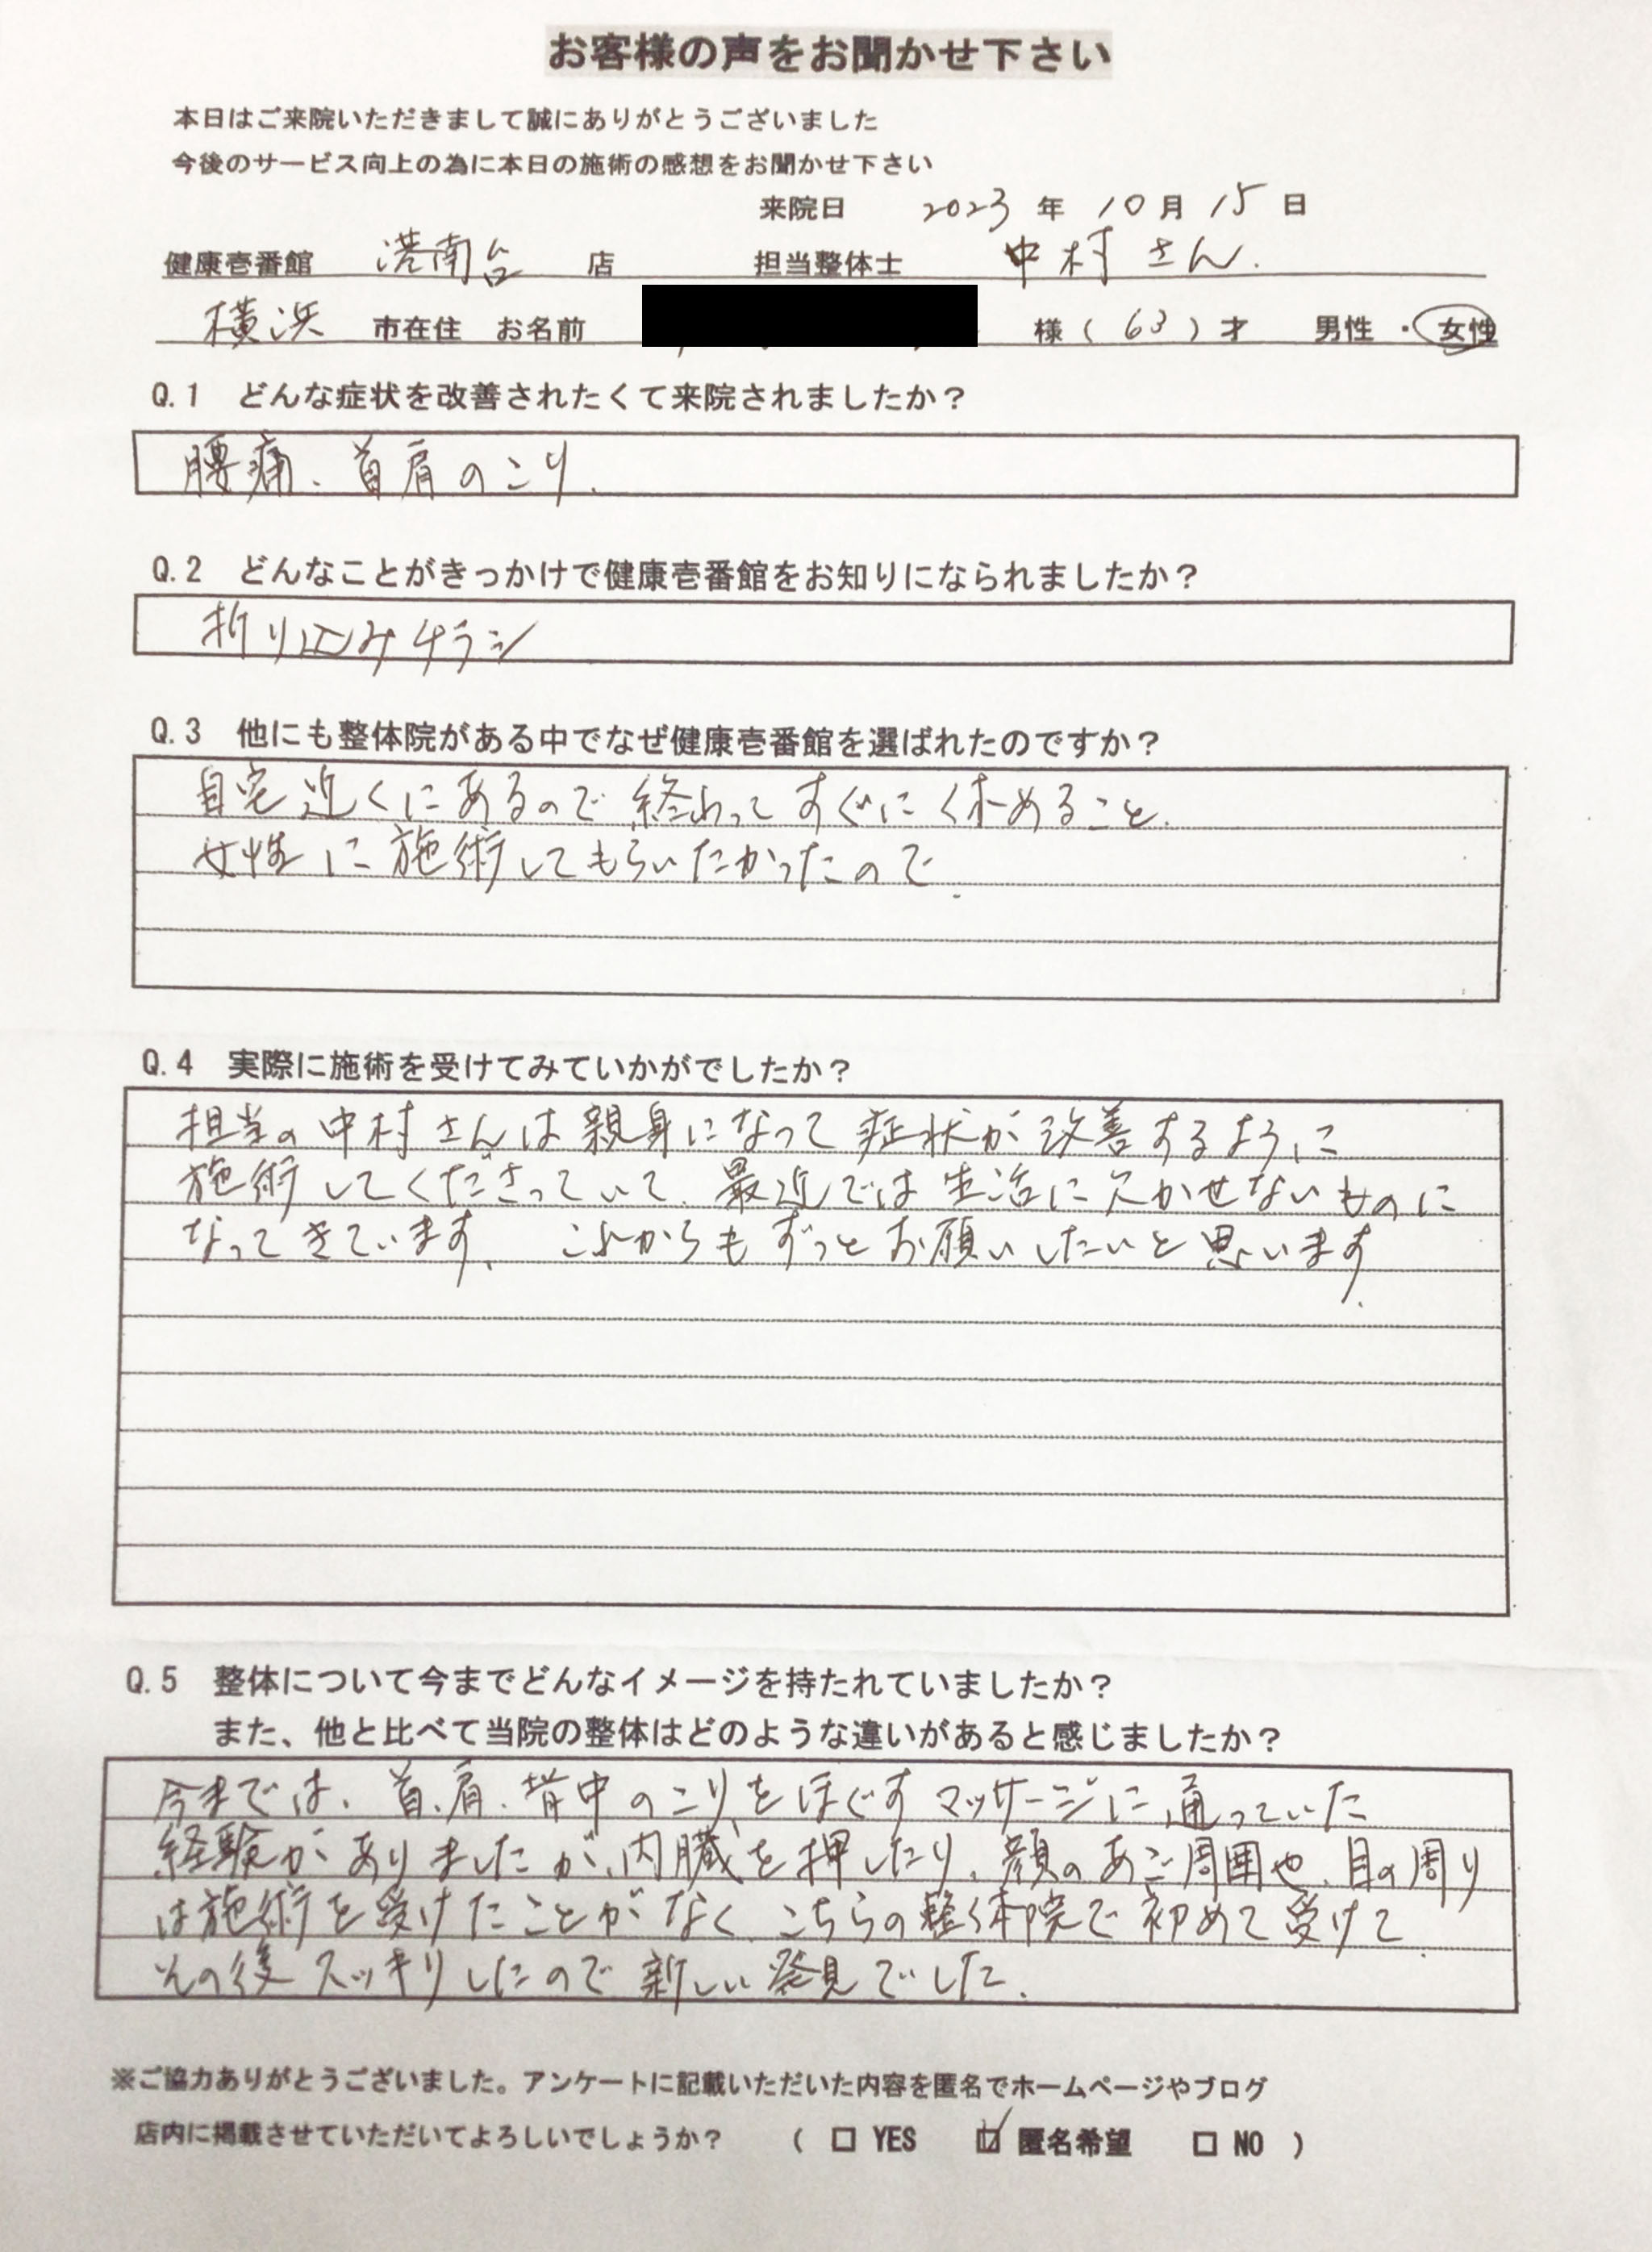 お客様の声をお聞かせ下さい
本日はご来院いただきまして誠にありがとうございました
今後のサービス向上の為に本日の施術の感想をお聞かせ下さい
来院日 2023 年 10 月 15 日
健康壱番館 港南台 店 担当整体士 中村さん.
横浜 市在住 お名前 様 ( 63 ) 才 男性 ・ 女性
Q.1 どんな症状を改善されたくて来院されましたか？
腰痛、首肩のこり.
Q.2 どんなことがきっかけで健康壱番館をお知りになられましたか？
折り込みチラシ
Q.3 他にも整体院がある中でなぜ健康壱番館を選ばれたのですか？
自宅近くにあるので終わってすぐに休めること.
女性に施術してもらいたかったので.
Q.4 実際に施術を受けてみていかがでしたか？
担当の中村さんは親身になって症状が改善するように
施術してくださっていて、最近では生活に欠かせないものに
なってきています、これからもずっとお願いしたいと思います.
Q.5 整体について今までどんなイメージを持たれていましたか？
また、他と比べて当院の整体はどのような違いがあると感じましたか？
今までは、首、肩、背中のこりをほぐすマッサージに通っていた
経験がありましたが、内臓を押したり、顔のあご周囲や、目の周り
は施術を受けたことがなく、こちらの整体院で初めて受けて
その後スッキリしたので新しい発見でした.
※ご協力ありがとうございました。アンケートに記載いただいた内容を匿名でホームページやブログ
店内に掲載させていただいてよろしいでしょうか？ ( □ YES ☑ 匿名希望 □ NO )